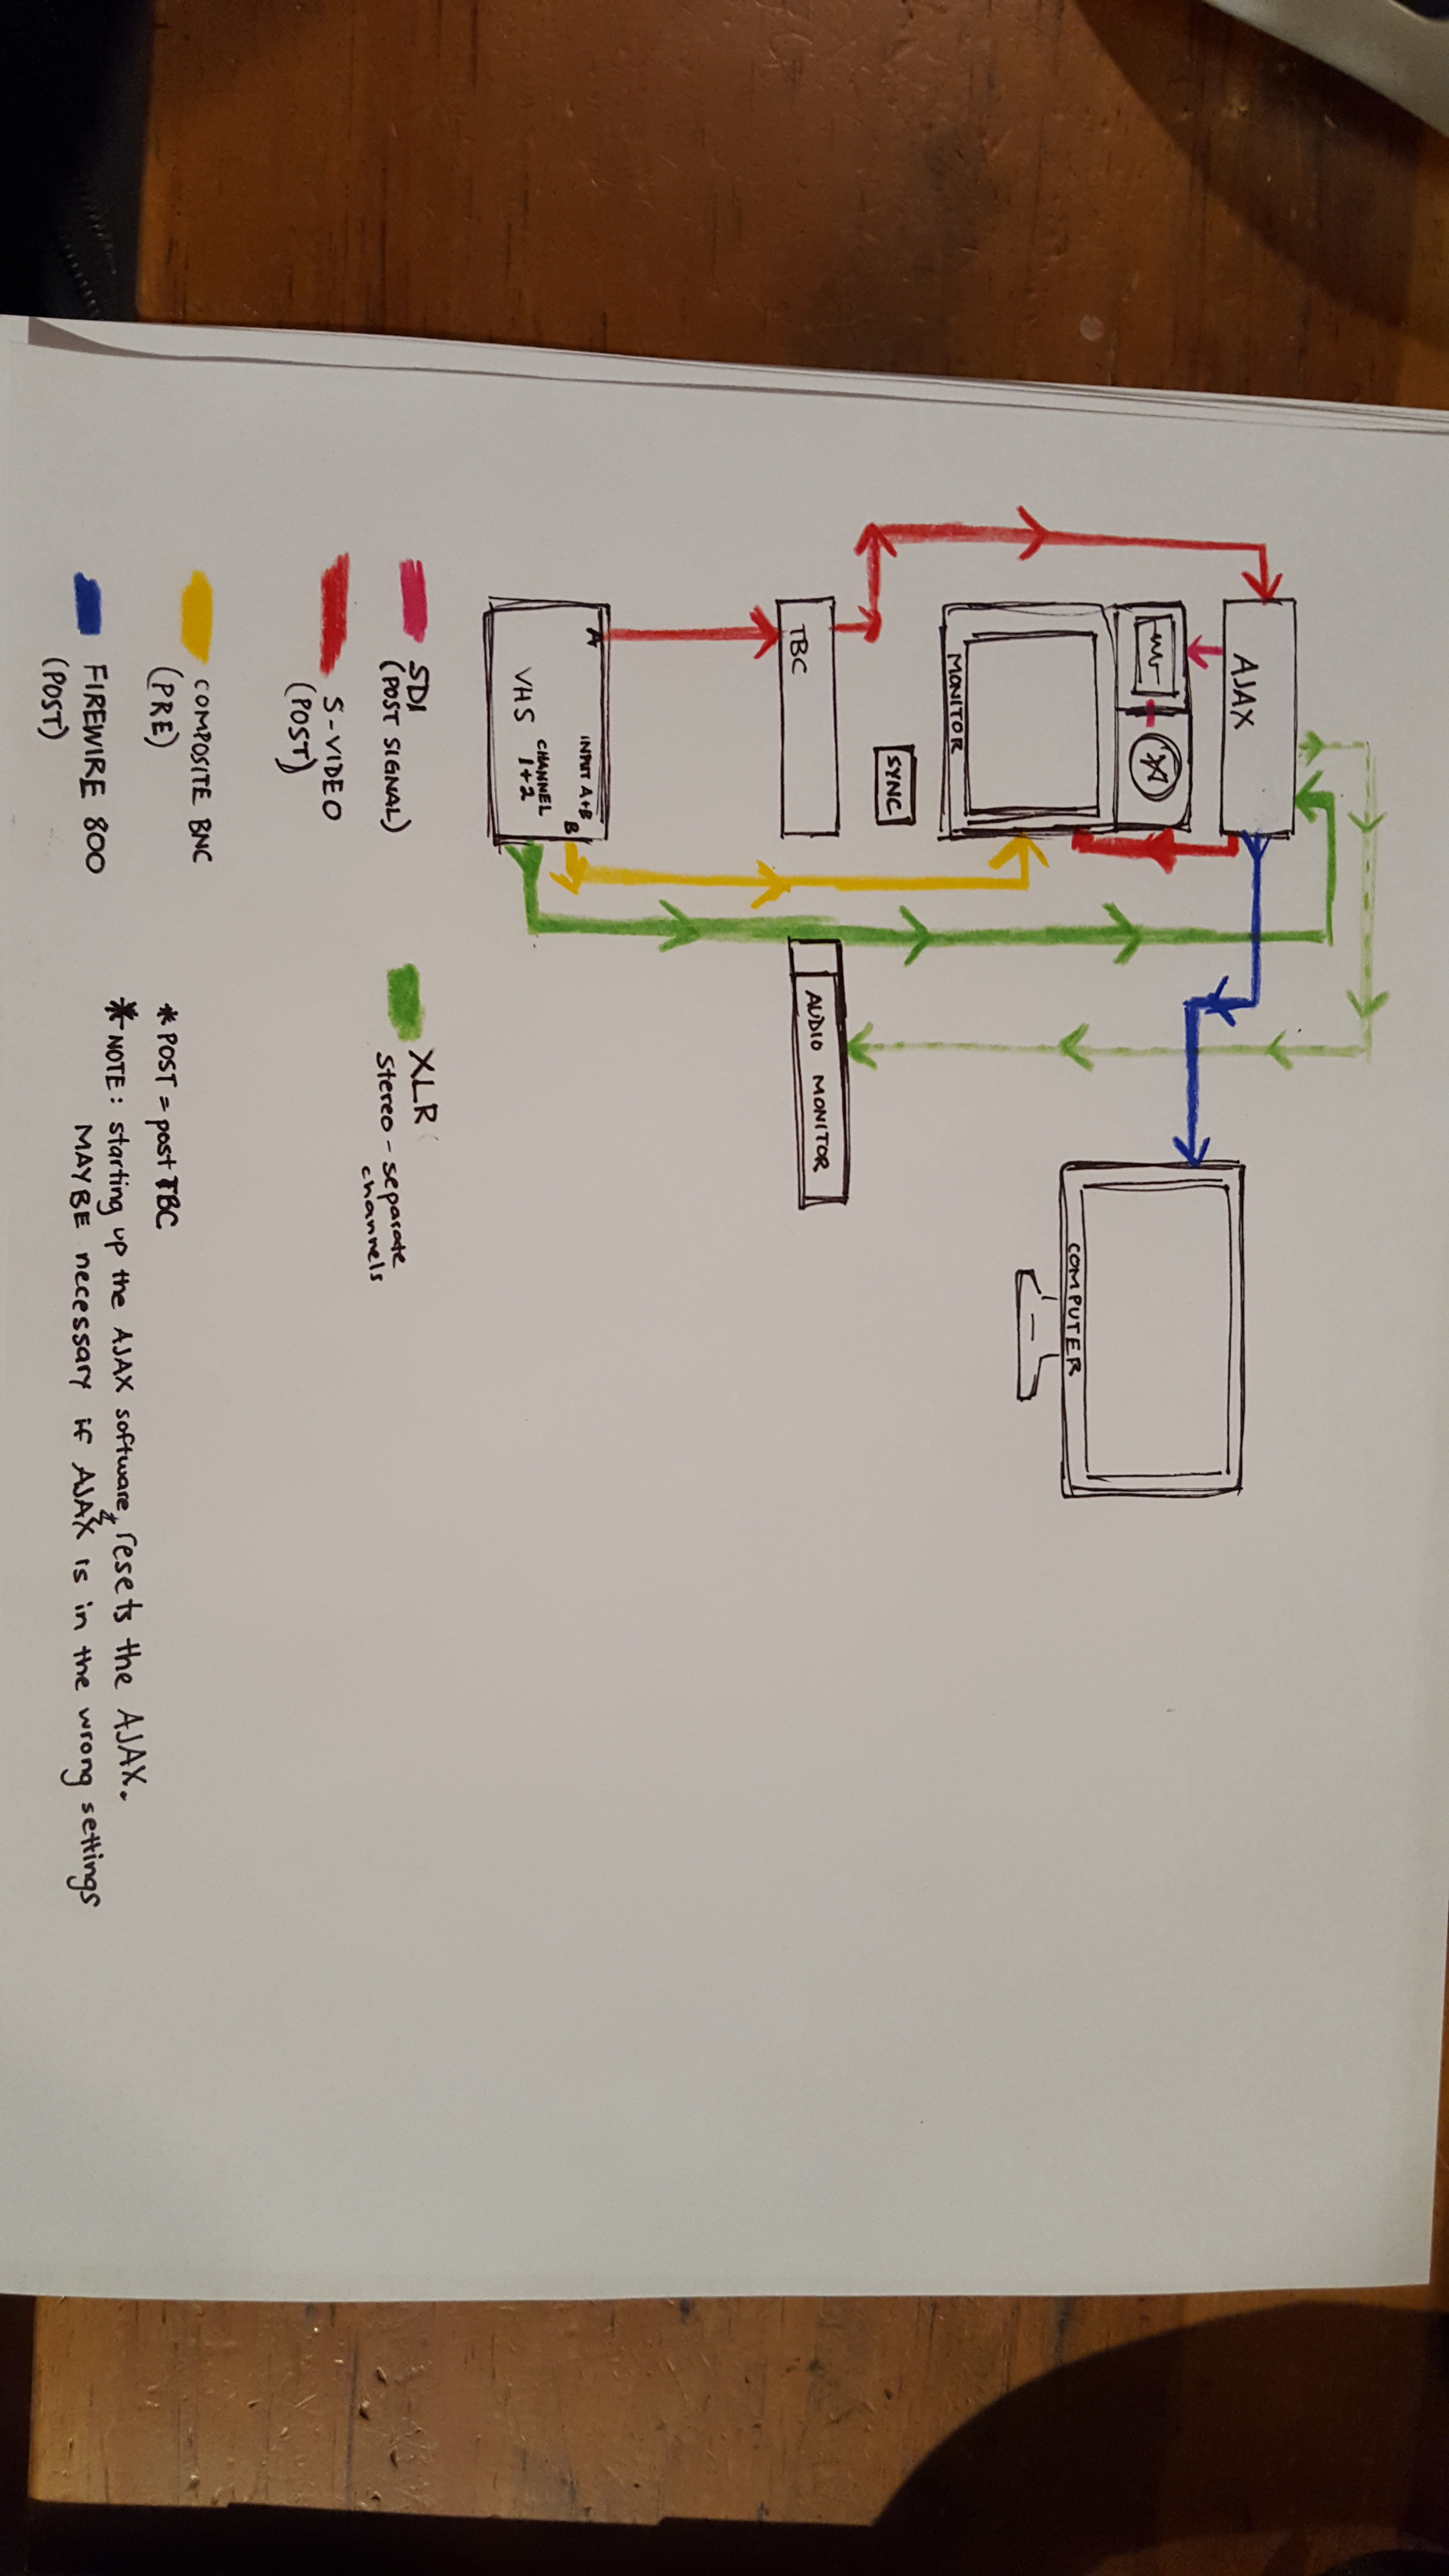 AJAX
MONITOR
SYNC
TBC
A
INPUT A+B
B
CHANNEL
1+2
VHS
AUDIO MONITOR
COMPUTER
SDI
(POST SIGNAL)
S-VIDEO
(POST)
COMPOSITE BNC
(PRE)
FIREWIRE 800
(POST)
XLR
Stereo - separate
channels
* POST = post TBC
* NOTE: starting up the AJAX software, resets the AJAX.
MAYBE necessary if AJAX is in the wrong settings